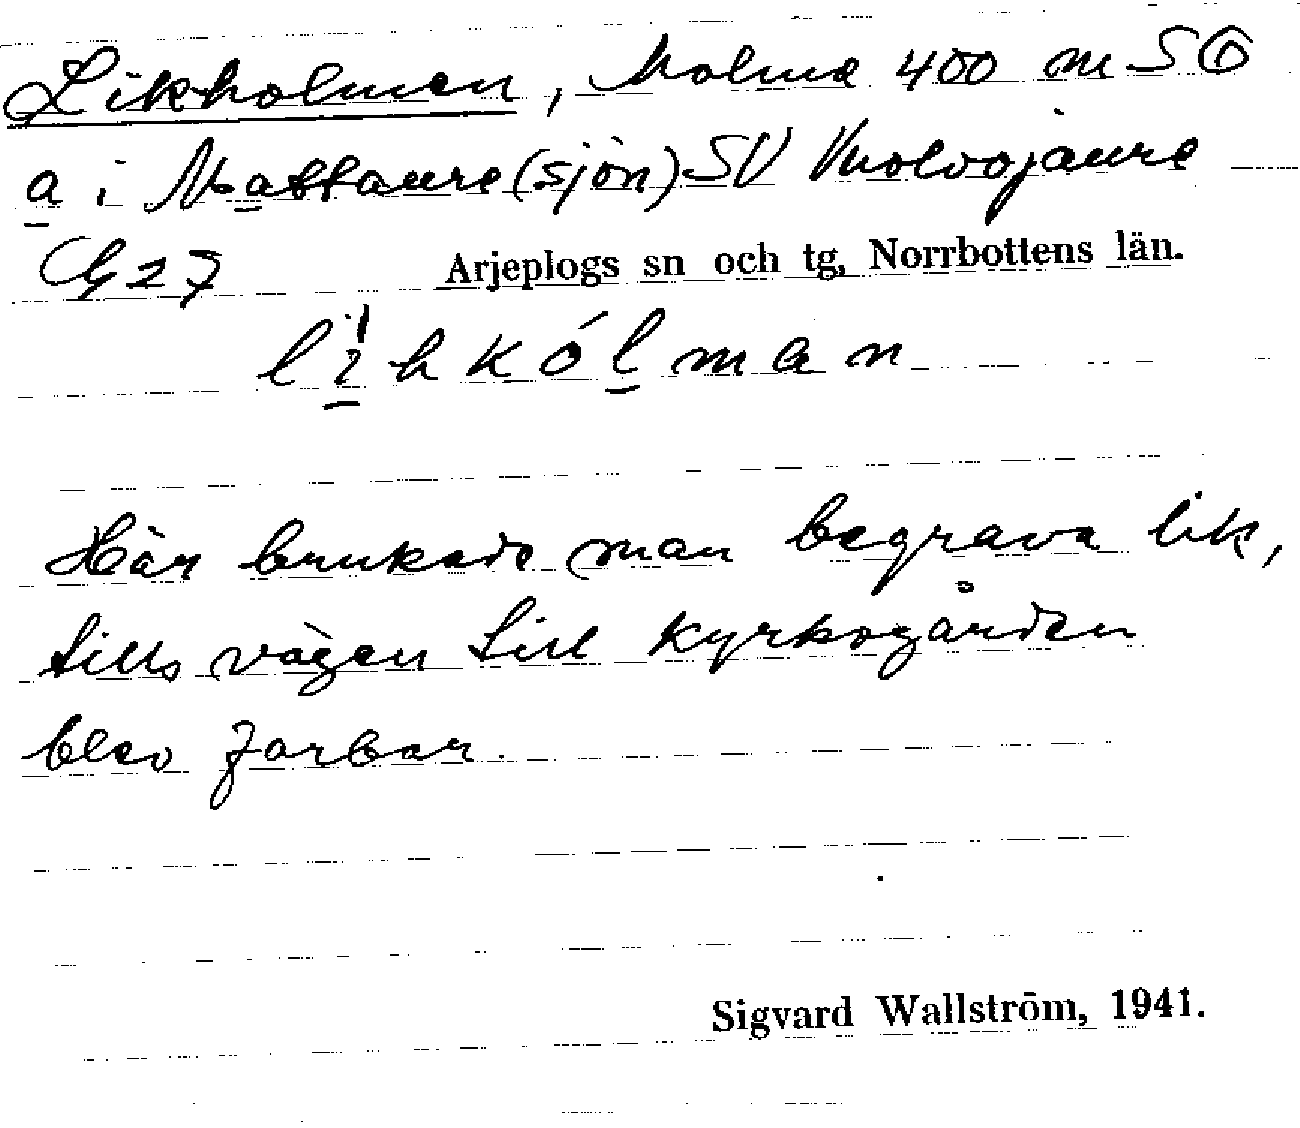 Likholmen, holme 400 m SO
a i Mattaure (sjön) SV Vuolvojaure
G27 Arjeplogs sn och tg, Norrbottens län.
lihkólman
Här brukade man begrava lik,
tills vägen till kyrkogården
blev farbar.
Sigvard Wallström, 1941.